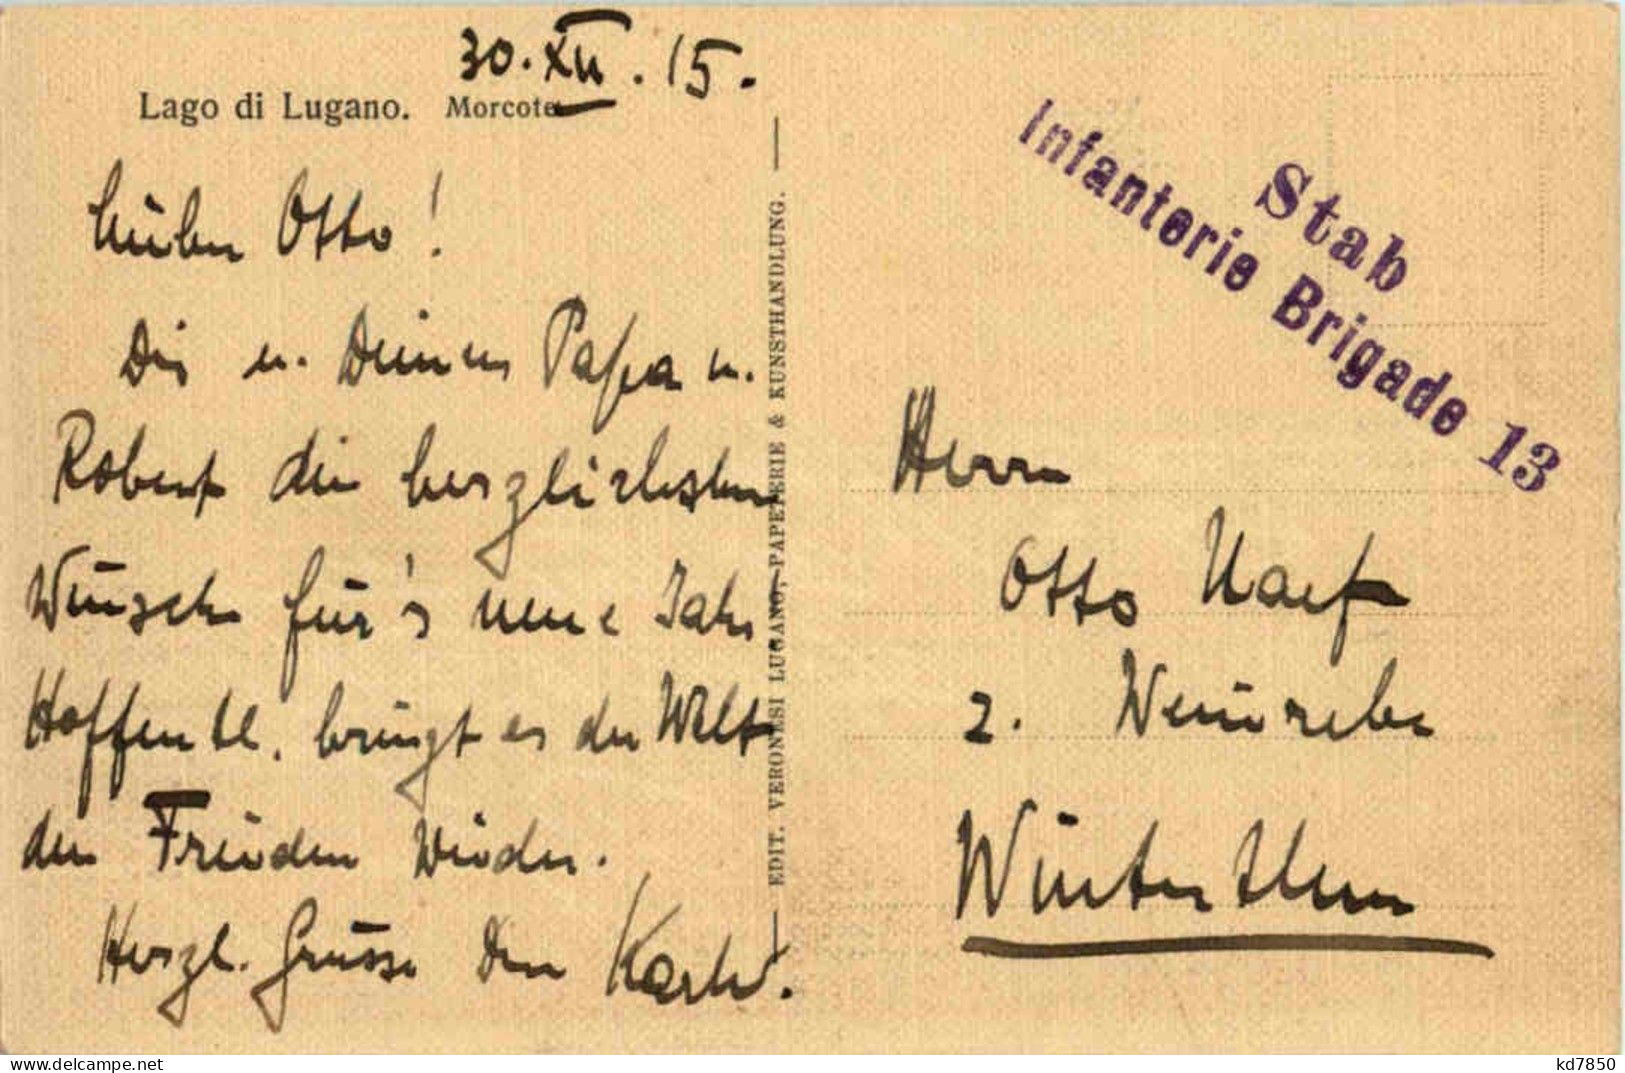 30. XII. 15.
Lago di Lugano. Morcote
Lieber Otto!
Dir u. Deinem Papa u.
Robert die herzlichsten
Wünsche für's neue Jahr
Hoffentl. bringt es der Welt
den Frieden wieder.
Herzl. Grüsse Dein
EDIT. VERONESI LUGANO, PAPETERIE & KUNSTHANDLUNG.
Stab
Infanterie Brigade 13
Herrn
Otto Naef
z. Weinrebe
Winterthur
delcampe.net
kd7850